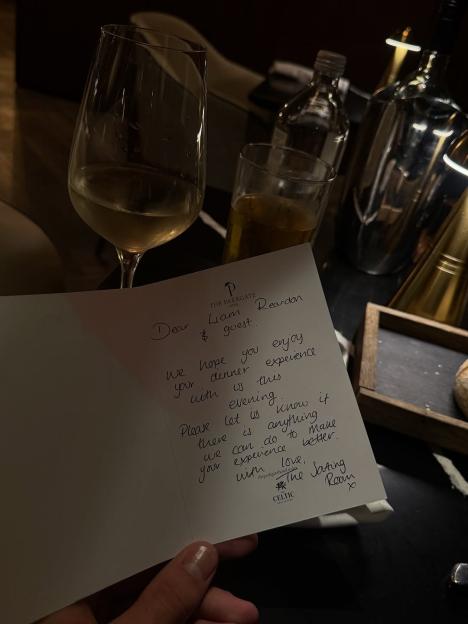 THE PARKGATE
Dear Liam Reardon
& guest.
We hope you enjoy
your dinner experience
with us this
evening.
Please let us know if
there is anything
we can do to make
your experience better.
with love,
The Sorting
Room
x
CELTIC